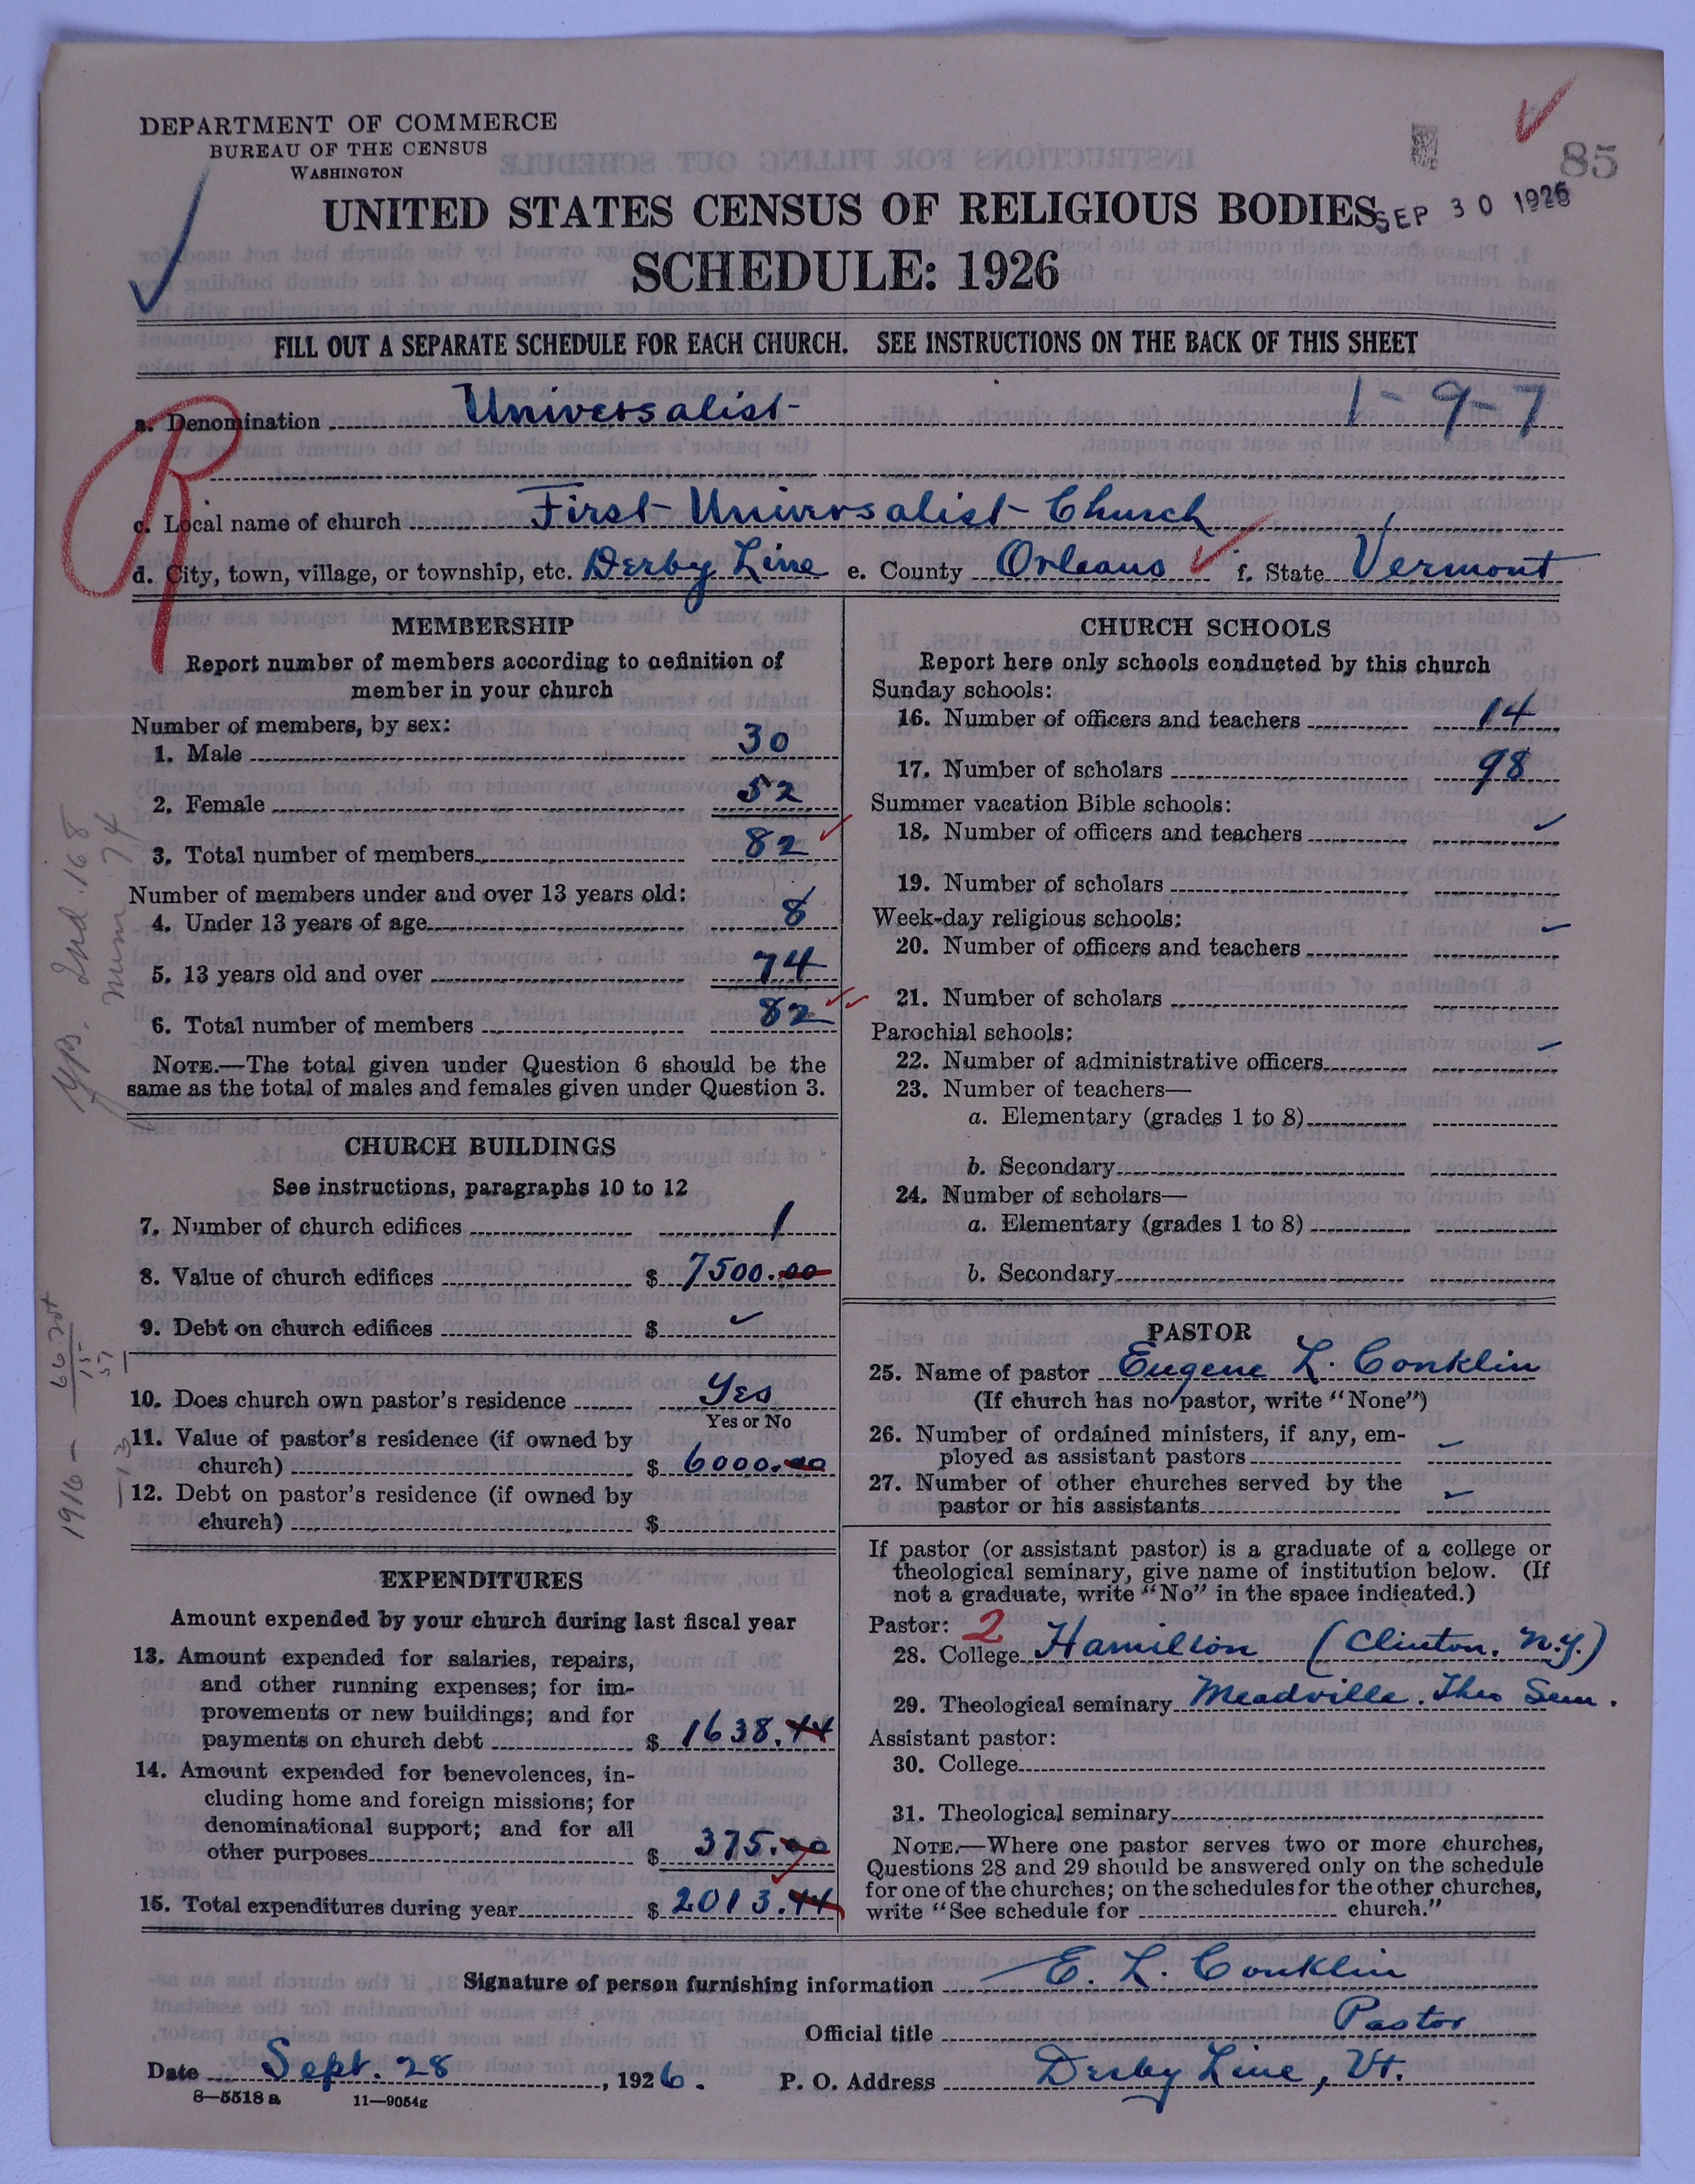 DEPARTMENT OF COMMERCE
BUREAU OF THE CENSUS
WASHINGTON
85
UNITED STATES CENSUS OF RELIGIOUS BODIES
SEP 30 1926
SCHEDULE: 1926
FILL OUT A SEPARATE SCHEDULE FOR EACH CHURCH. SEE INSTRUCTIONS ON THE BACK OF THIS SHEET
a. Denomination Universalist 1-9-7
c. Local name of church First Universalist Church
d. City, town, village, or township, etc. Derby Line e. County Orleans f. State Vermont
R
MEMBERSHIP
Report number of members according to definition of
member in your church
Number of members, by sex:
1. Male 30
2. Female 52
3. Total number of members 82
Number of members under and over 13 years old:
4. Under 13 years of age 8
5. 13 years old and over 74
6. Total number of members 82
NOTE.—The total given under Question 6 should be the
same as the total of males and females given under Question 3.
CHURCH BUILDINGS
See instructions, paragraphs 10 to 12
7. Number of church edifices 1
8. Value of church edifices $ 7500.00
9. Debt on church edifices $
10. Does church own pastor's residence Yes
Yes or No
11. Value of pastor's residence (if owned by
church) $ 6000.00
12. Debt on pastor's residence (if owned by
church) $
EXPENDITURES
Amount expended by your church during last fiscal year
13. Amount expended for salaries, repairs,
and other running expenses; for im-
provements or new buildings; and for
payments on church debt $ 1638.44
14. Amount expended for benevolences, in-
cluding home and foreign missions; for
denominational support; and for all
other purposes $ 375.00
15. Total expenditures during year $ 2013.44
CHURCH SCHOOLS
Report here only schools conducted by this church
Sunday schools:
16. Number of officers and teachers 14
17. Number of scholars 98
Summer vacation Bible schools:
18. Number of officers and teachers
19. Number of scholars
Week-day religious schools:
20. Number of officers and teachers
21. Number of scholars
Parochial schools:
22. Number of administrative officers
23. Number of teachers—
a. Elementary (grades 1 to 8)
b. Secondary
24. Number of scholars—
a. Elementary (grades 1 to 8)
b. Secondary
PASTOR
25. Name of pastor Eugene L. Conklin
(If church has no pastor, write "None")
26. Number of ordained ministers, if any, em-
ployed as assistant pastors
27. Number of other churches served by the
pastor or his assistants
If pastor (or assistant pastor) is a graduate of a college or
theological seminary, give name of institution below. (If
not a graduate, write "No" in the space indicated.)
Pastor: 2
28. College Hamilton (Clinton, N.Y.)
29. Theological seminary Meadville. Theo Sem.
Assistant pastor:
30. College
31. Theological seminary
NOTE.—Where one pastor serves two or more churches,
Questions 28 and 29 should be answered only on the schedule
for one of the churches; on the schedules for the other churches,
write "See schedule for church."
Signature of person furnishing information E. L. Conklin
Official title Pastor
Date Sept. 28, 1926. P. O. Address Derby Line, Vt.
8—5518 a 11—9054g
168
74
1916 —
13